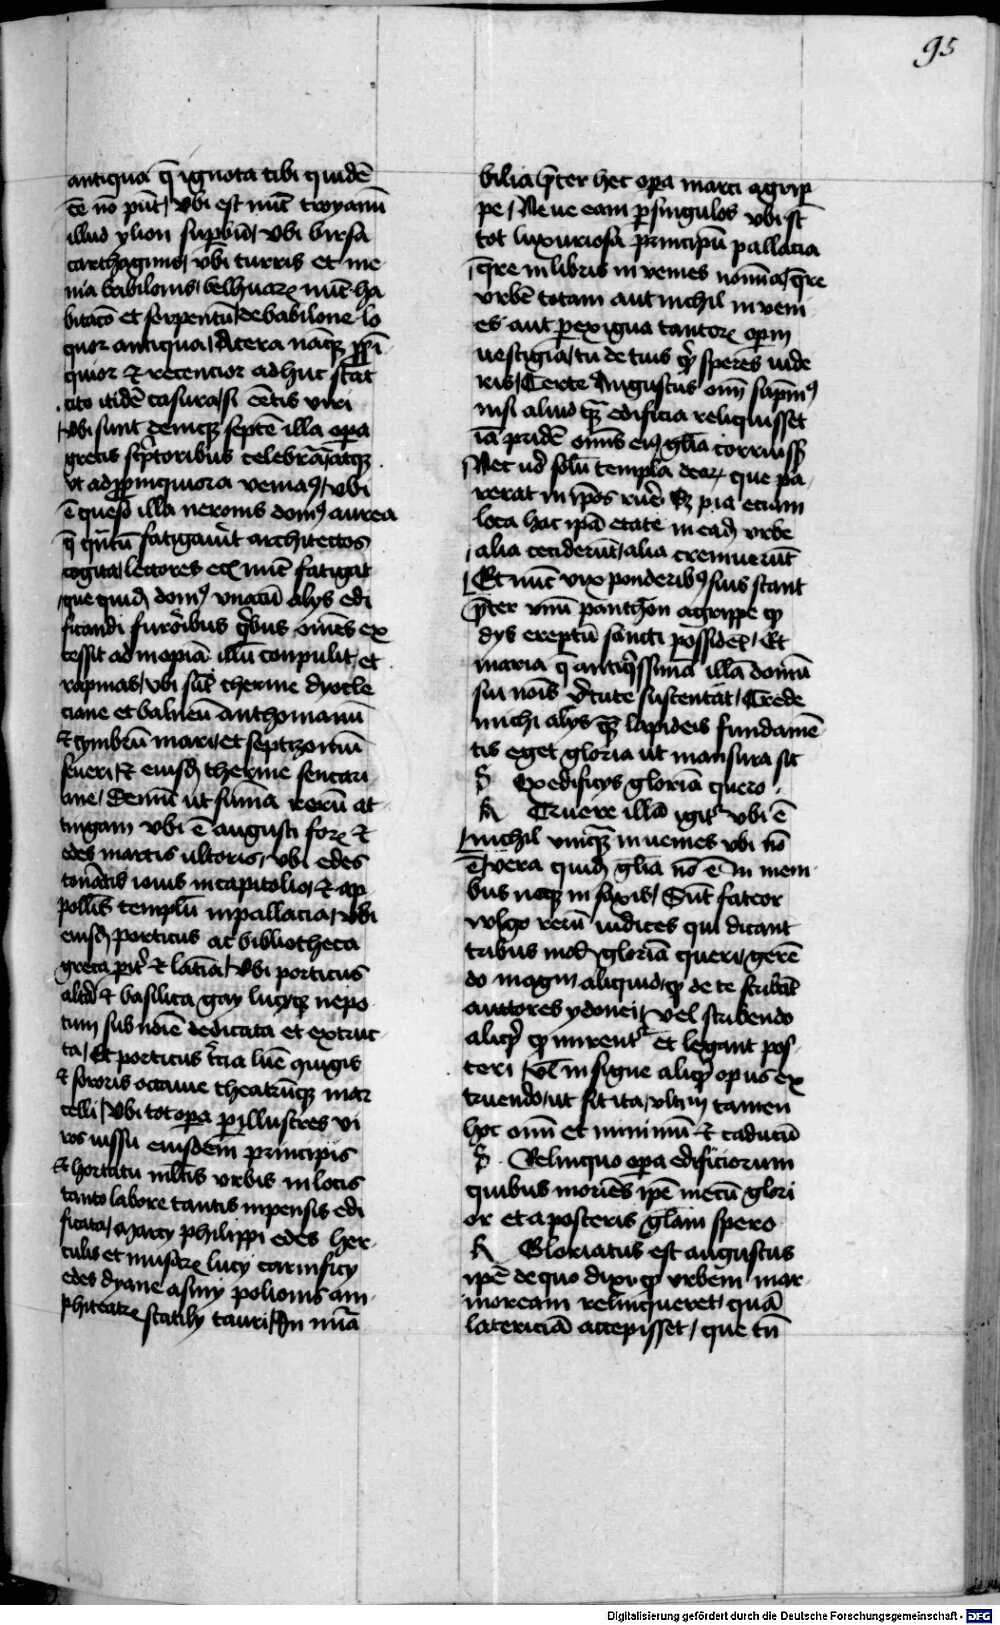 95
antiqua q̄ ignota tibi quidē
cē nō pn̄t / vbi est nūc troyanū
illud ylion supbūd / vbi birsa
carthaginis / vbi turris et me
nia babilonis / belhuarꝝ nūc ha
bitacō et serpentū / de babilone lo
quor antiqua /
quior et recencior adhuc stat
cito itidē casura / si cētis viri
Vbi sunt deniqꝫ septē illa opa
grecis scptoribus celebrā atqꝫ
vt ad ppinquiora veniaꝰ / vbi
ē queso illa neronis domꝰ aurea
q̄ fatigauit architectos
cogita / lectores ecꝫ nūc fatigat
que quidꝫ domꝰ vnacū alys edi
ficandi furoribus qbus om̄es ex
cessit ad inopiā illū conpulit et
rapinas / vbi sūt therme dyocle
ciane et balneū anthonianū
et cymbrū mari / et septizoniū
seueri / et eiusdꝫ therme seueri
ane / Deniqꝫ ut sūma rerū at
tingam vbi ē augusti forꝝ et
edes martis ultoris / vbi edes
tonātis iouis in capitolio / et ap
pollis templū in pallacia / vbi
eiusdꝫ porticus ac bibliotheca
greca pit et latīa / Vbi porticus
altā et basilica gay lucyqꝫ nepo
tum sub nōie dedicata et extruc
ta / Et porticus tcia liuie quigis
et sororis octauie theatrūqꝫ mar
celli / Vbi tot opa p illustres vi
ros iussu eiusdem principis
et hortatu mltis vrbis in locis
tanto labore tantis inpensis edi
ficata / marcy philippi edes her
culis et musarꝝ lucy cornificy
edes dyane asiny polionis am
phiteatrꝝ statily tauri / In nūa
bilia pter hec opa marci agrip
pe / Ne ue eam p singulos vbi st̄
tot luxuriosa principū pallacia
qre in libris inuenies nomīa / qre
vrbē totam aut nichil inueni
es aut pexigua tantorꝝ opm
uestigia / tu de tuis qd sperēs uide
ris / Certe Augustus om̄ sūpmꝰ
nisi aliud qꝫ edificia reliquisset
iā pridē om̄is eiꝰ glīa corruissꝫ
Nec ud solū templa deorꝫ que pa
rerat in ipos ruēt sꝫ pia eciam
loca hac ipā etate in eadꝫ vrbe
alia ceciderūt / alia tremuerūt
Et nūc vix ponderibꝰ suis stant
pter vnū pantheon agrippe qd
dys ereptū sancti possidēt / Et
maria q̄ antiqssimā illā domū
sui nōis vtute sustentat / Crede
michi alys qꝫ lapideis fundamē
tis eget gloria ut mansura sit
G Ex edificys gloriā quero .
R Truere illā igitr vbi ē
nichil vnqꝫ inuenies vbi nō
ē / vera quidꝫ glīa nō ē in mem
bus neqꝫ in saxis / Sūt fateor
vulgo rerū iudices qui dicant
tribus mod gloriā queri / gerē
do magni aliquid / qd de te scribāt
auctores ydonei / Vel scribendo
aliqd qd mirentr et legant pos
teri / Vel insigne aliqd opus ex
truendo / ut sit ita / vltim tamen
hoc om̄ et minimū et caducū
G . Relinquo opa edificiorum
quibus moriēs ipē mecū glori
or et a posteris glām spero
R Gloriatus est augustus
ipē de quo dixi / qd vrbem mar
moream relinqueret / quā
latericiā accepisset / que tn̄
Digitalisierung gefördert durch die Deutsche Forschungsgemeinschaft - DFG